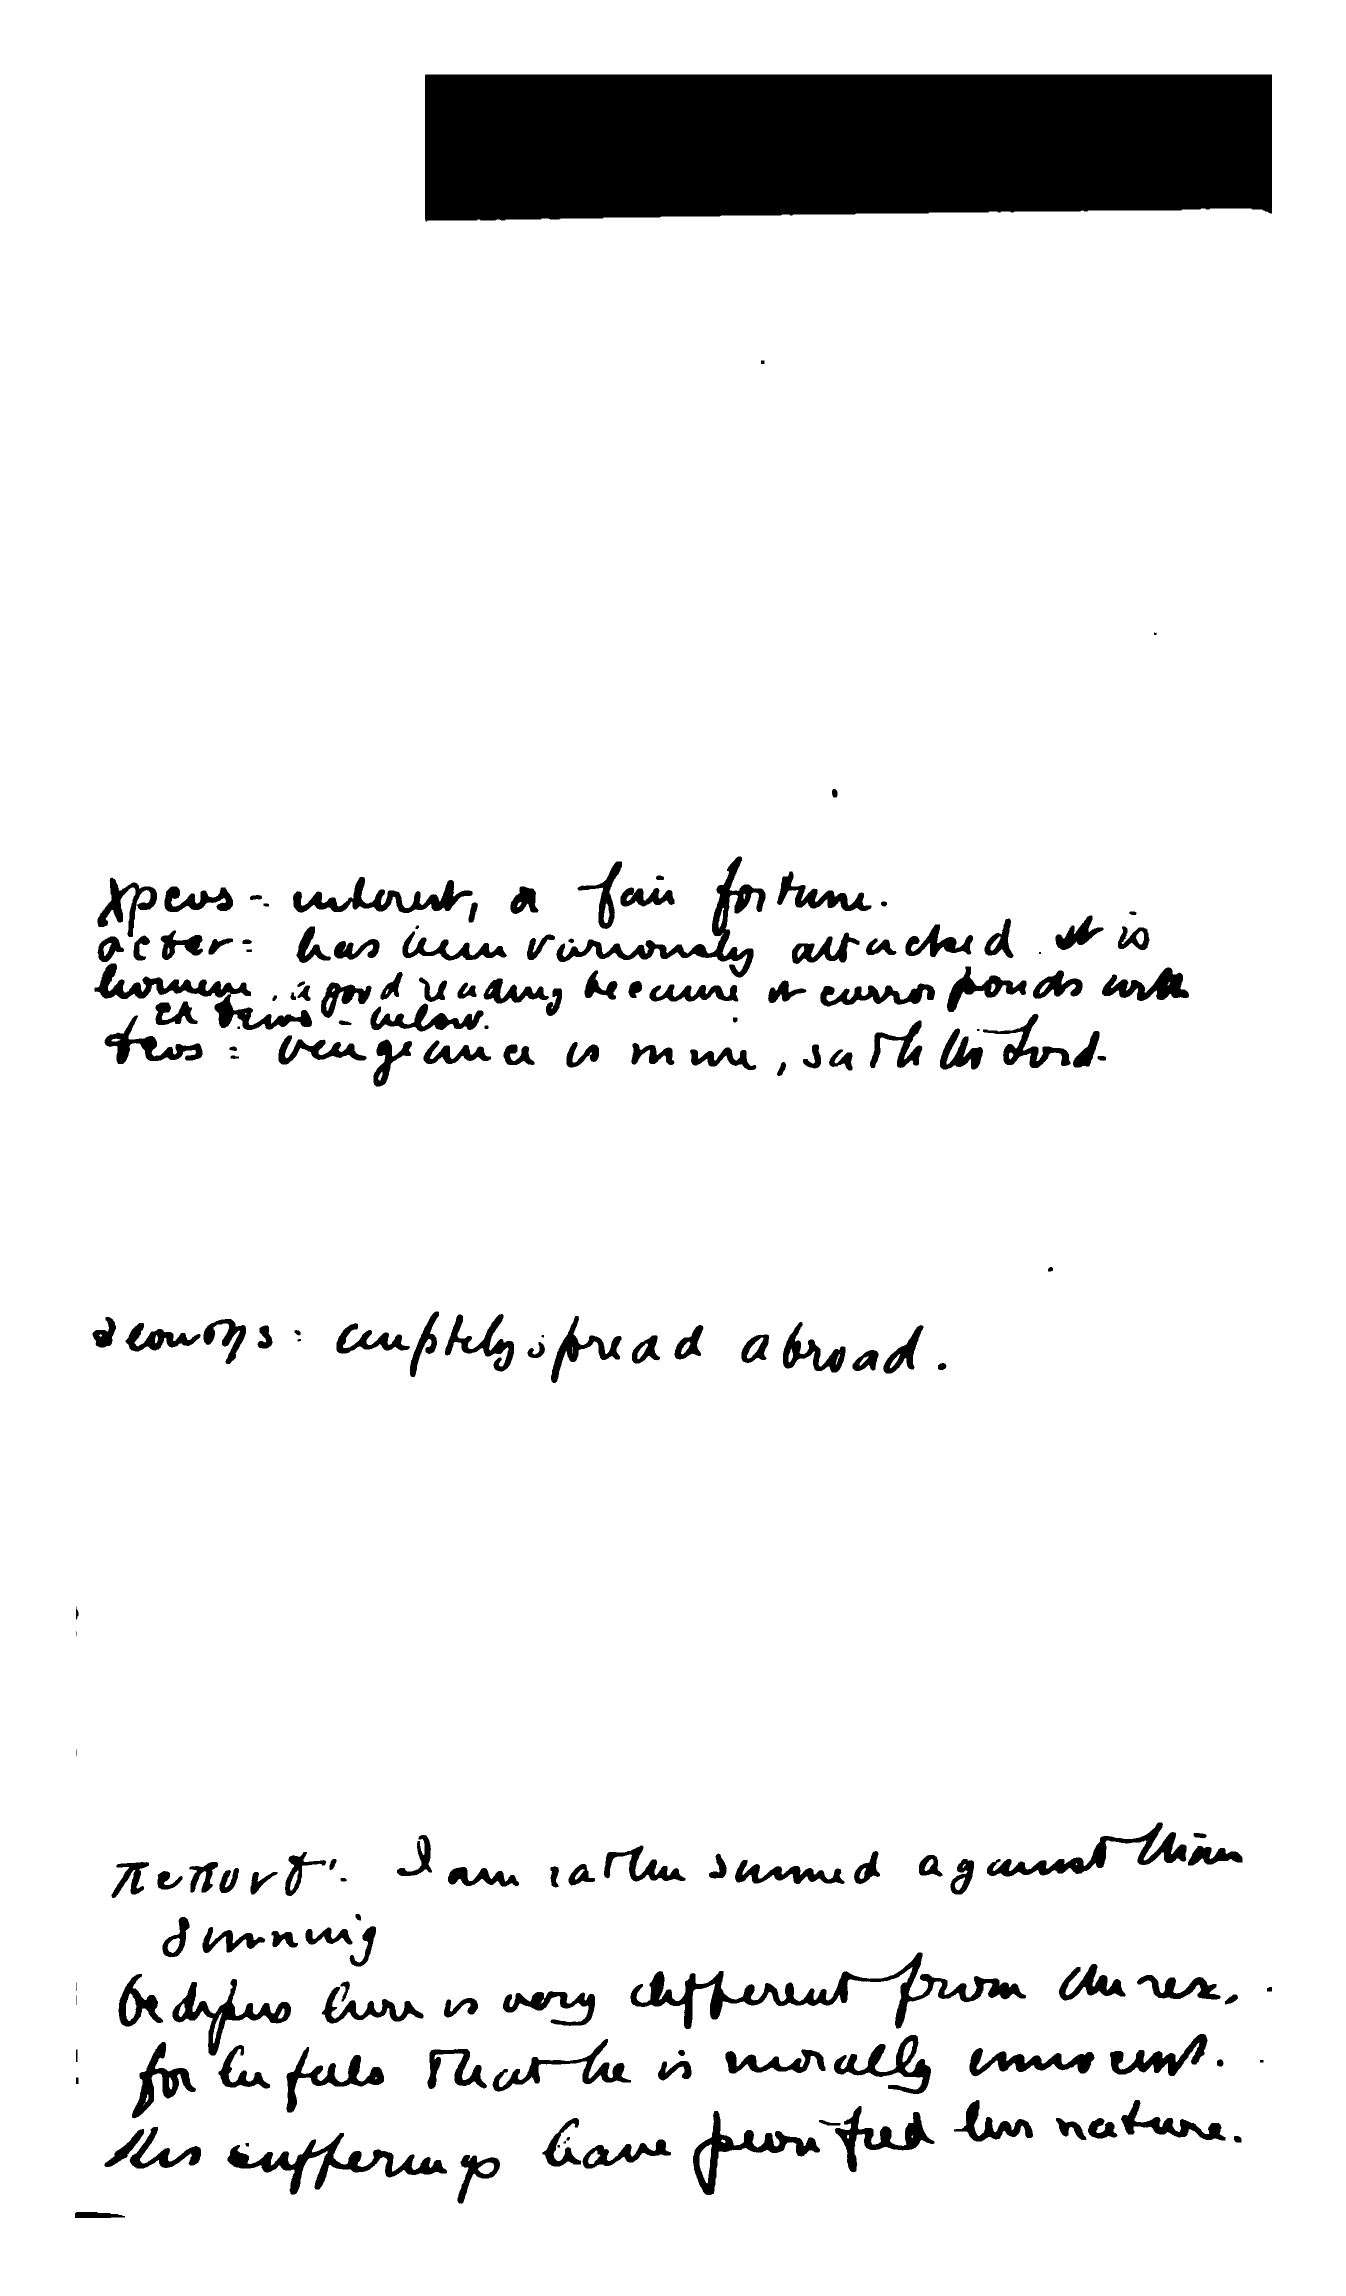 χρεος - interest, a fair fortune.
has been variously attacked. It is
however, a good reading because it corresponds with
below.
θεος : vengeance is mine, saith the Lord.
: amply spread abroad.
πεπονθ': I am rather sinned against than
sinning
Oedipus here is very different from the rex,
for he feels that he is morally innocent.
His sufferings have purified his nature.